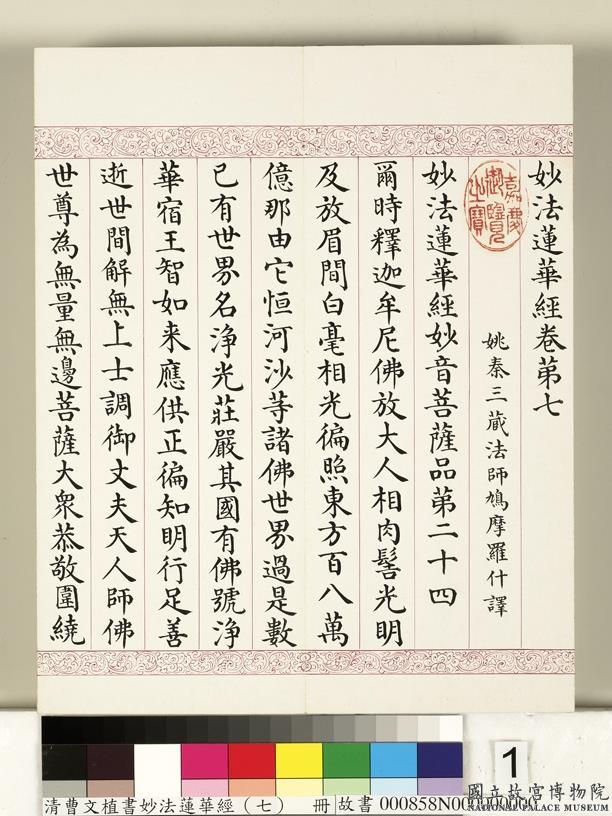 妙法蓮華經卷第七
嘉慶
御覽
之寶
姚秦三藏法師鳩摩羅什譯
妙法蓮華經妙音菩薩品第二十四
爾時釋迦牟尼佛放大人相肉髻光明
及放眉間白毫相光徧照東方百八萬
億那由它恒河沙等諸佛世界過是數
已有世界名淨光莊嚴其國有佛號淨
華宿王智如来應供正徧知明行足善
逝世間解無上士調御丈夫天人師佛
世尊為無量無邊菩薩大衆恭敬圍繞
1
清曹文植書妙法蓮華經(七) 冊 故書 000858N000000000
國立故宮博物院
NATIONAL PALACE MUSEUM